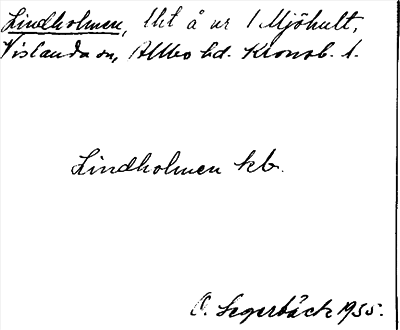 Lindholmen, lht å nr 1 Mjöhult,
Vislanda sn, Allbo hd. Kronob. l.
Lindholmen kb.
O. Segerbäck 1955.